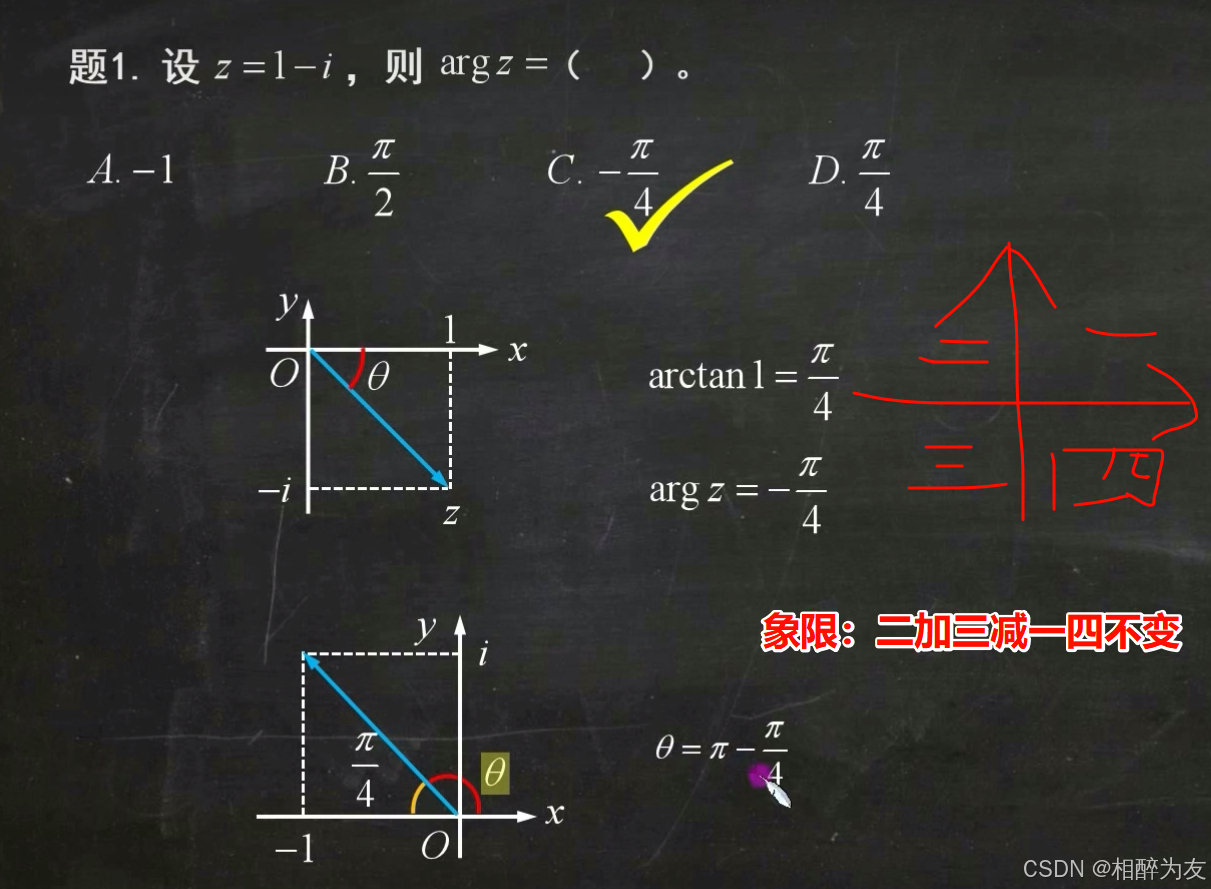 题1. 设 z = 1 − i ，则 arg z =（ ）。
A. −1 B. π/2 C. −π/4 D. π/4
y
1
x
O
θ
−i
z
arctan 1 = π/4
arg z = −π/4
二 一
三 四
象限：二加三减一四不变
y
i
π/4
θ
x
−1
O
θ = π − π/4
CSDN @相醉为友